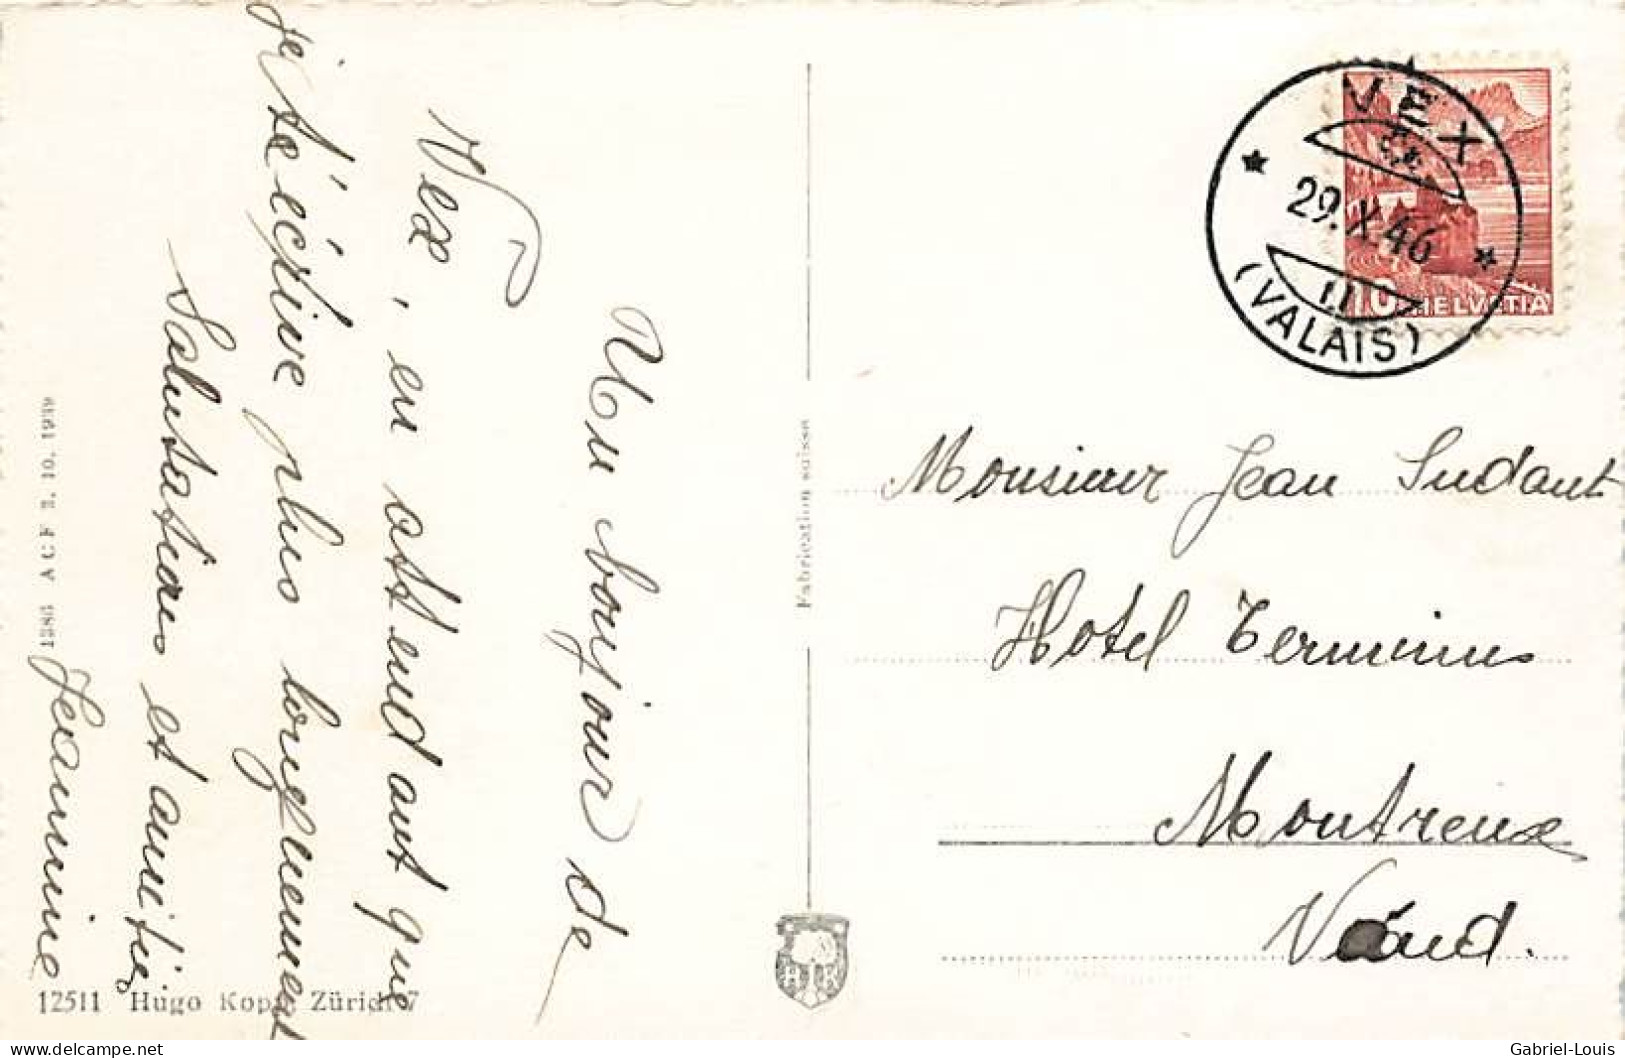 Un bonjour de
Vex, en attendant que
je t'écrive plus longuement
Salutations et amitiés
Jeannine
1386 ACF 3. 10. 1939
12511 Hugo Kopp, Zürich 7
Fabrication suisse
VEX
29.X.46
(VALAIS)
10 HELVETIA
Monsieur Jean Sudant
Hotel Terminus
Montreux
Vaud.
Gabriel-Louis
delcampe.net